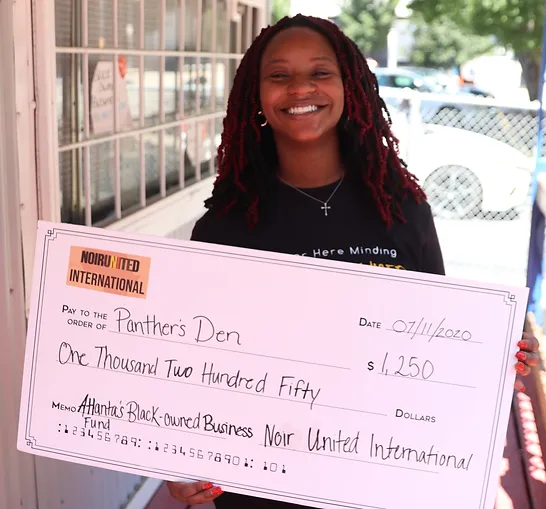 er Here Minding
NOIRUNITED
INTERNATIONAL
PAY TO THE
ORDER OF Panther's Den
DATE 07/11/2020
One Thousand Two Hundred Fifty
$ 1,250
DOLLARS
MEMO Atlanta's Black-owned Business
Fund
Noir United International
:123456789: :12345678901: 101